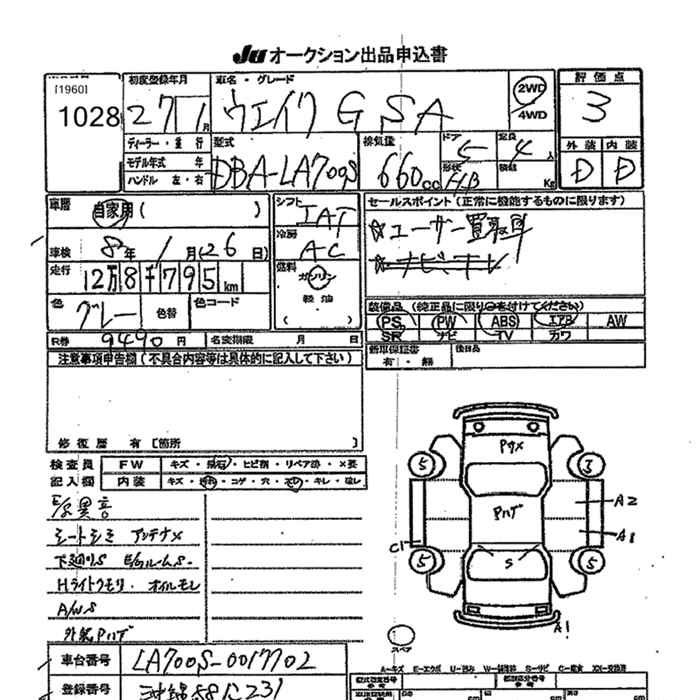 JU オークション出品申込書
[1960]
1028
初度登録年月
27 1月
車名・グレード
ウエイク GSA
2WD
4WD
評価点
3
ディーラー・並行
モデル年式 年
ハンドル 左・右
型式
DBA-LA700S
排気量
660cc
ドア
5
形状
HB
定員
4人
積載
Kg
外装 内装
D D
車歴
自家用 ( )
シフト
IAT
セールスポイント (正常に機能するものに限ります)
☆ユーザー買取車
☆ナビ・テレ
冷房
AC
車検
8年 1月(26日)
走行
12万8千795km
燃料
ガソリン
軽油
( )
色
グレー
色替
色コード
装備品 (純正品に限り○を付けてください)
PS PW ABS エアB AW
SR ナビ TV カワ
R券
9490円
名変期限 月 日
新車保証書
有・無
後日品
注意事項申告欄 (不具合内容等は具体的に記入して下さい)
修復歴 有 [箇所 ]
検査員
記入欄
FW
キズ・飛石・ヒビ割・リペア済・×要
内装
キズ・汚れ・コゲ・穴・スレ・キレ・破レ
E/g異音
シートシミ アンテナ×
下廻りS E/gルームS-
Hライトクモリ・オイルモレ
A/WS
外装Pハゲ
PサメX
Pハゲ
S
5
3
5
5
A2
A1
C1
A1
スペア
車台番号
LA700S-0017702
A-キズ E-エクボ U-凹み W-補修跡 S-サビ C-腐食 XX-交換済
登録番号
沖縄581に231